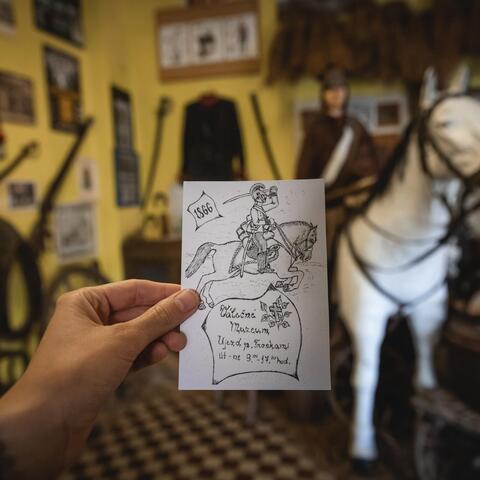 1866
Válečné
Muzeum
Újezd p. Troskami
út - ne 9.⁰⁰-17.⁰⁰ hod.